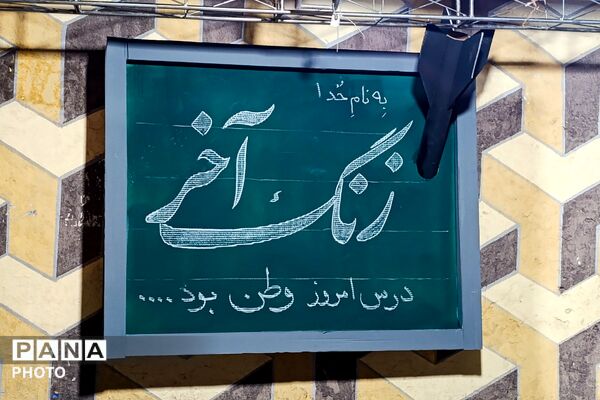 بِه نامِ خُدا
زنگ آخر
درس امروز وطن بود ....
PANA
PHOTO